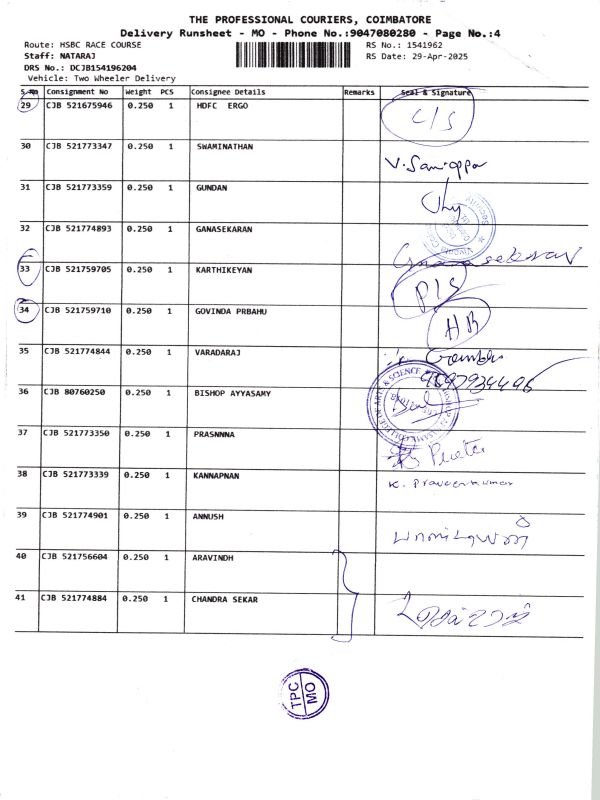 THE PROFESSIONAL COURIERS, COIMBATORE
Delivery Runsheet - MO - Phone No.:9047080280 - Page No.:4
Route: HSBC RACE COURSE RS No.: 1541962
Staff: NATARAJ RS Date: 29-Apr-2025
DRS No.: DCJB154196204
Vehicle: Two Wheeler Delivery
S.No Consignment No Weight PCS Consignee Details Remarks Seal & Signature
29 CJB 521675946 0.250 1 HDFC ERGO C/S
30 CJB 521773347 0.250 1 SWAMINATHAN
31 CJB 521773359 0.250 1 GUNDAN
32 CJB 521774893 0.250 1 GANASEKARAN Gnanasekaran
33 CJB 521759705 0.250 1 KARTHIKEYAN P/S
34 CJB 521759710 0.250 1 GOVINDA PRBAHU HR
35 CJB 521774844 0.250 1 VARADARAJ
36 CJB 80760250 0.250 1 BISHOP AYYASAMY
37 CJB 521773350 0.250 1 PRASNNNA
38 CJB 521773339 0.250 1 KANNAPNAN K. Praveenkumar
39 CJB 521774901 0.250 1 ANNUSH
40 CJB 521756604 0.250 1 ARAVINDH
41 CJB 521774884 0.250 1 CHANDRA SEKAR
TPC
MO